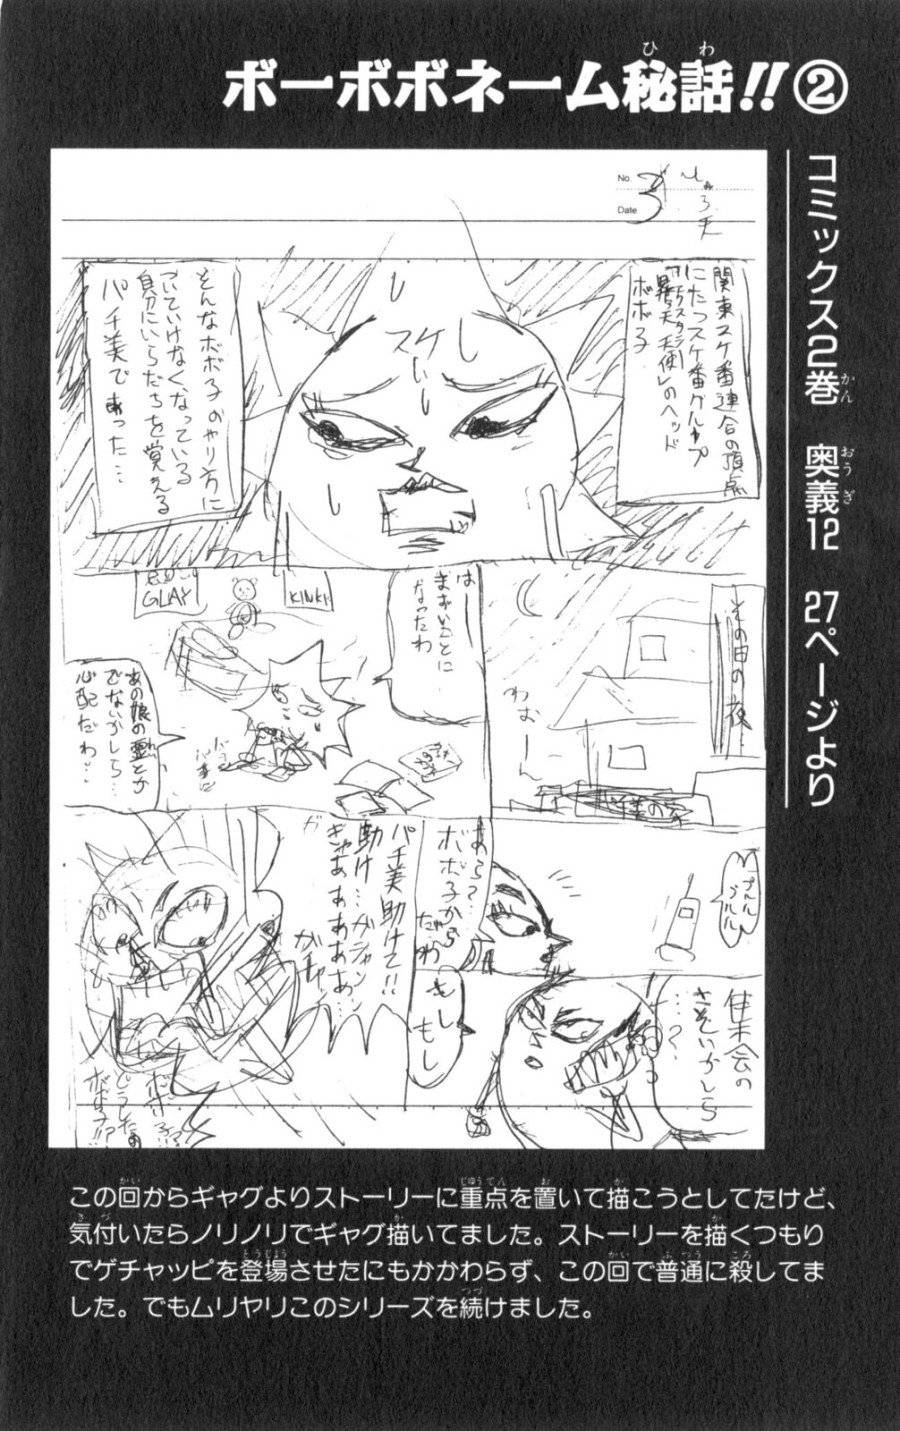 ボーボボネーム秘話!!②
ひわ
コミックス2巻 奥義12 27ページより
かん
おうぎ
No.
3
Date
関東スケ番連合の頂点
にたつスケ番グループ
昇天天使のヘッド
ボボ子
スケし
そんなボボ子のやり方に
ついていけなくなっている
自分にいらだちを覚える
パチ美であった…
その日の夜…
わおーん
はー
まずいことに
なったわ
KINKI
GLAY
あの娘の霊とか
でないかしら…
心配だわ…
プルルル
プルルル
あら?…
ボボ子から
だわ
集会の
さそいかしら
…?
もし
もし
パチ美助けて!!
動け…ガシャン
ぎゃああああああ…
ガ
どうしたの
ボボ子!?
この回からギャグよりストーリーに重点を置いて描こうとしてたけど、
かい
じゅうてん
お
か
気付いたらノリノリでギャグ描いてました。ストーリーを描くつもり
きづ
か
か
でゲチャッピを登場させたにもかかわらず、この回で普通に殺してま
とうじょう
かい
ふつう
ころ
した。でもムリヤリこのシリーズを続けました。
つづ